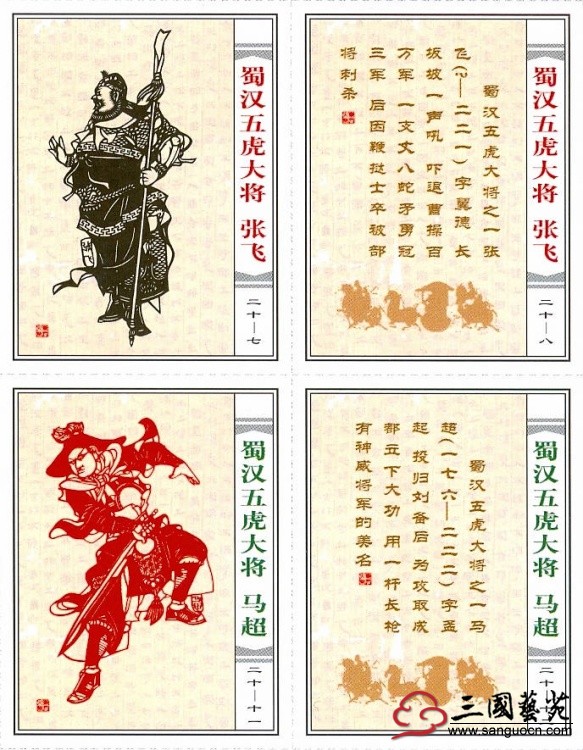 蜀汉五虎大将 张飞
二十—七
蜀汉五虎大将之一张
飞(?—二二一)字翼德 长
坂坡一声吼 吓退曹操百
万军 一支丈八蛇矛勇冠
三军 后因鞭挞士卒被部
将刺杀
蜀汉五虎大将 张飞
二十—八
蜀汉五虎大将 马超
二十—十一
蜀汉五虎大将之一马
超(一七六—二二二)字孟
起 投归刘备后 为攻取成
都立下大功 用一杆长枪
有神威将军的美名
蜀汉五虎大将 马超
二十—
三國藝苑
www.sanguocn.com